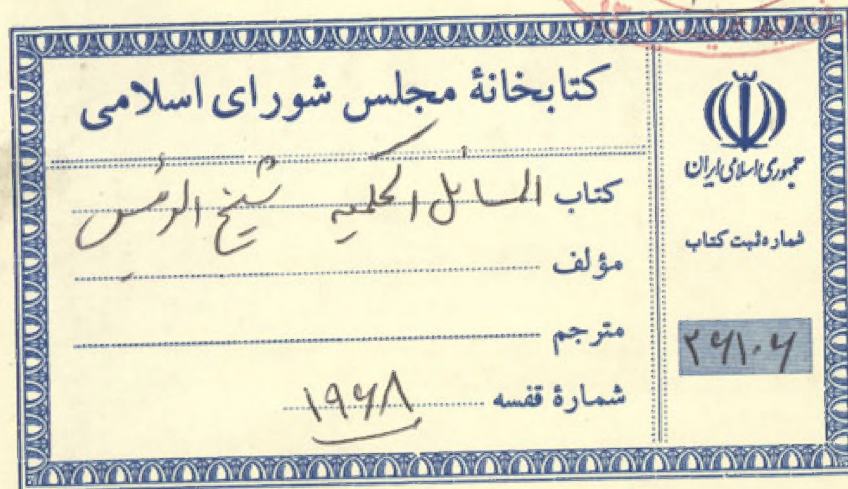 کتابخانهٔ مجلس شورای اسلامی
کتاب المسائل الحکمیه شیخ الرئیس
مؤلف
مترجم
شمارهٔ قفسه ۱۹۶۸
جمهوری اسلامی ایران
شماره ثبت کتاب
۲۶۱۰۶